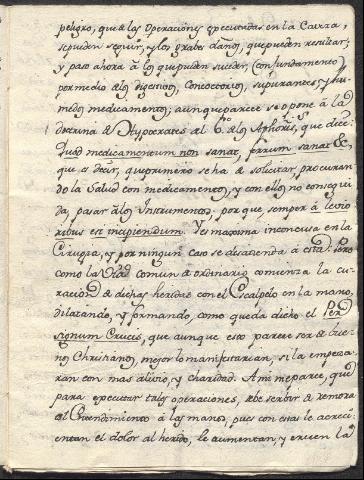 peligro, que de las Operaciones executadas en la Cavza,
se pueden seguir, y los grabes daños, que pueden resultar;
y paso ahora à los que pueden suceder, con fundamento
por medio de los digestivos, Concoctorios, supurantes, y hu-
medos medicamentos; aunque parece se opone à la
doctrina de Hypocrates al 6.º de los Aphoris.s, que dice:
Quod medicamentum non sanat, ferrum sanat &c,
que es decir, que primero se ha de solicitar, procuran
do la Salud con medicamentos, y con ellos no consegui
da, pasar à los Instrumentos, por que, semper à levio
ribus est incipiendum. Y es maxima inconcusa en la
Cirugia, y por ningun caso se desatienda à esta. Pero
como la comun de ordinario comienza la cu
racion de dichas heridas con el Escalpelo en la mano,
dilatando, y formando, como queda dicho el Per
signum Crucis, que aunque esto parece ser de bue
nos Christianos, mejor lo manifestarian, si la empeza-
ran con mas alivio, y charidad. A mi me parece, que
para executar tales operaciones, debe serbir de remora
al Entendimiento à las manos, pues con estas le acreci-
entan el dolor al herido, le aumentan, y crucen la